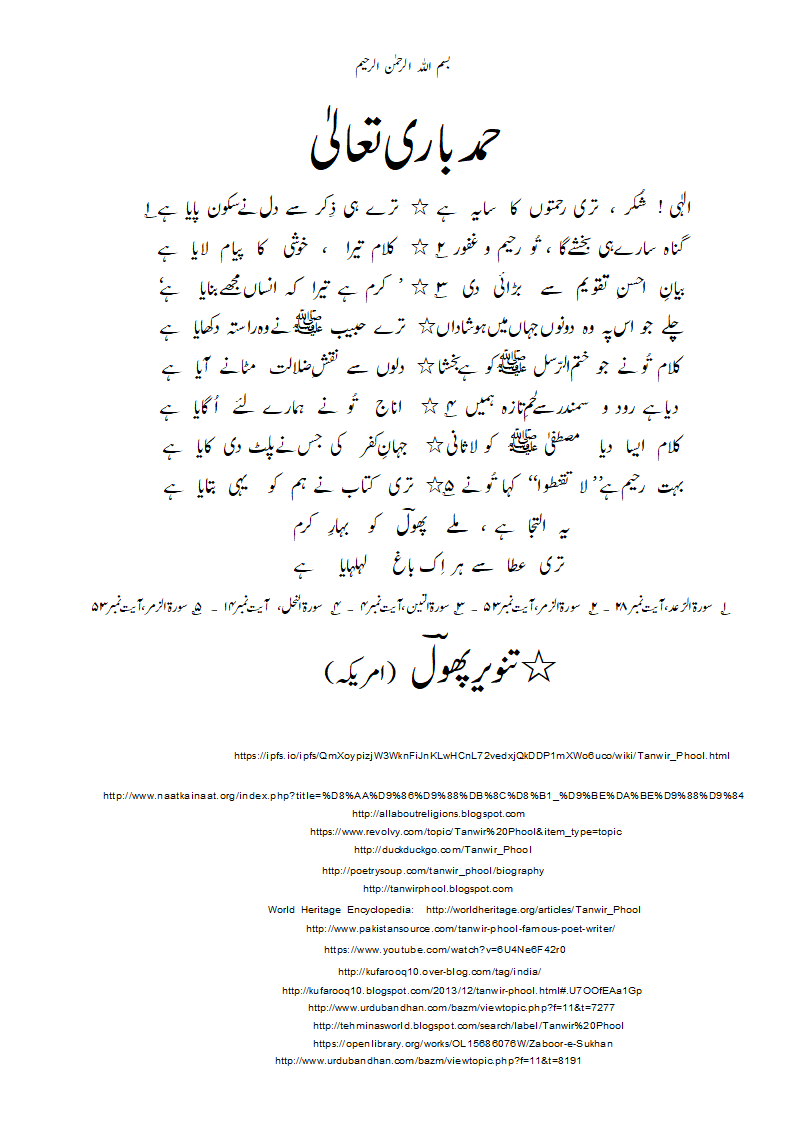 بسم اللہ الرحمٰن الرحیم
حمد باری تعالیٰ
الٰہی ! شُکر ، تری رحمتوں کا سایہ ہے ☆ ترے ہی ذِکر سے دل نے سکون پایا ہے ۱؎
گناہ سارے ہی بخشے گا ، تُو رحیم و غفور ۲؎ ☆ کلام تیرا ، خوشی کا پیام لایا ہے
بیانِ احسن تقویم سے بڑائی دی ۳؎ ☆ ’ کرم ہے تیرا کہ انساں مجھے بنایا ہے‘
چلے جو اس پہ وہ دونوں جہاں میں ہو شاداں ☆ ترے حبیب ﷺ نے وہ راستہ دکھایا ہے
کلام تُو نے جو ختم الرّسل ﷺ کو ہے بخشا ☆ دلوں سے نقشِ ضلالت مٹانے آیا ہے
دیا ہے رود و سمندر سے لحمِ تازہ ہمیں ۴؎ ☆ اناج تُو نے ہمارے لئے اُگایا ہے
کلام ایسا دیا مصطفیٰ ﷺ کو لاثانی ☆ جہانِ کفر کی جس نے پلٹ دی کایا ہے
بہت رحیم ہے’’ لا تقنطوا‘‘ کہا تُو نے ۵؎ ☆ تری کتاب نے ہم کو یہی بتایا ہے
یہ التجا ہے ، ملے پھولؔ کو بہارِ کرم
تری عطا سے ہر اِک باغ لہلہایا ہے
۱؎ سورۃ الرّعد،آیت نمبر ۲۸ ۔ ۲؎ سورۃ الزمر،آیت نمبر ۵۳ ۔ ۳؎ سورۃ التین،آیت نمبر ۴ ۔ ۴؎ سورۃ النحل، آیت نمبر ۱۴ ۔ ۵؎ سورۃ الزمر،آیت نمبر ۵۳
☆ تنویر پھولؔ (امریکہ)
https://ipfs.io/ipfs/QmXoypizjW3WknFiJnKLwHCnL72vedxjQkDDP1mXWo6uco/wiki/Tanwir_Phool.html
http://www.naatkainaat.org/index.php?title=%D8%AA%D9%86%D9%88%DB%8C%D8%B1_%D9%BE%DA%BE%D9%88%D9%84
http://allaboutreligions.blogspot.com
https://www.revolvy.com/topic/Tanwir%20Phool&item_type=topic
http://duckduckgo.com/Tanwir_Phool
http://poetrysoup.com/tanwir_phool/biography
http://tanwirphool.blogspot.com
World Heritage Encyclopedia: http://worldheritage.org/articles/Tanwir_Phool
http://www.pakistansource.com/tanwir-phool-famous-poet-writer/
https://www.youtube.com/watch?v=6U4Ne6F42r0
http://kufarooq10.over-blog.com/tag/india/
http://kufarooq10.blogspot.com/2013/12/tanwir-phool.html#.U7OOfEAa1Gp
http://www.urdubandhan.com/bazm/viewtopic.php?f=11&t=7277
http://tehminasworld.blogspot.com/search/label/Tanwir%20Phool
https://openlibrary.org/works/OL15686076W/Zaboor-e-Sukhan
http://www.urdubandhan.com/bazm/viewtopic.php?f=11&t=8191